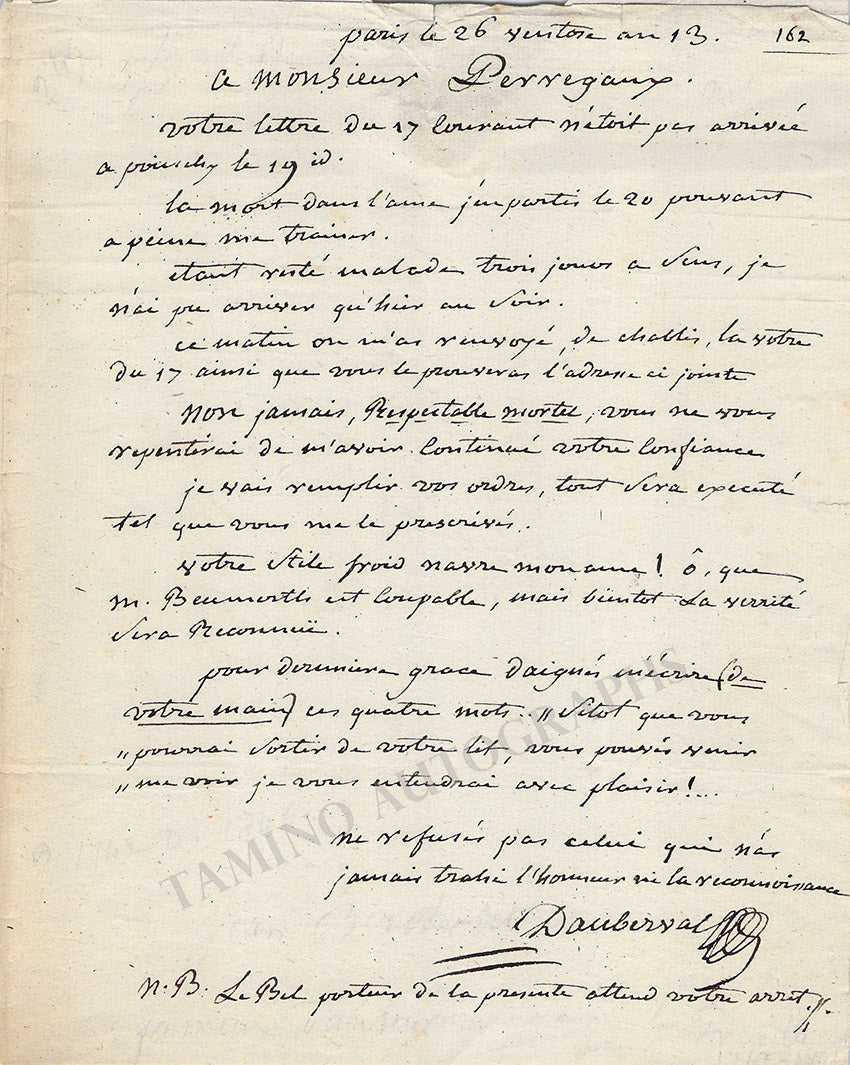 paris le 26 ventose an 13. 162
a monsieur Perregaux.
votre lettre du 17 Courant n'étoit pas arrivée
a le 19 id.
la mort dans l'ame j'en partis le 20 pouvant
a peine me trainer.
etant resté malade trois jours a Sens, je
n'ai pu arriver qu'hier au Soir.
ce matin on m'as renvoyé, de chablis, la votre
du 17 ainsi que vous le prouveras l'adresse ci jointe
non jamais, Respectable mortel, vous ne vous
repentérai de m'avoir Continué votre Confiance
je vais remplir vos ordres, tout Sera executé
tel que vous me le prescrivés.
votre Stile froid navre mon ame! ô, que
m. est Coupable, mais bientot La verrité
Sera Reconnuë.
pour derniere grace daignés m'écrire (de
votre main) ces quatre mots.. „ Sitot que vous
„ pourrai Sortir de votre lit, vous pouvés venir
„ me voir je vous entendrai avec plaisir!...
ne refusés pas celui qui n'as
jamais trahi l'honneur ni la reconnoissance
Dauberval
N.B. Le Bel porteur de la presente attend votre arret.
TAMINO AUTOGRAPHS